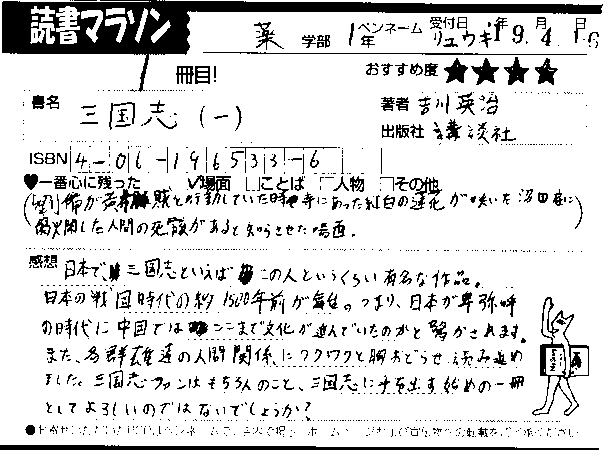 読書マラソン
薬 学部 1年 ペンネーム リュウキ 受付日 19年 4月 16日
1 冊目! おすすめ度 ★★★★
書名 三国志 (一) 著者 吉川英治
出版社 講談社
ISBN 4-06-196533-6
♥一番心に残った ✓場面 □ことば □人物 □その他
(劉備が黄巾賊と行動していた時、寺にあった紅白の蓮花が咲いた沼
した人間の死骸があると知らせた場面。)
感想 日本で、三国志といえばこの人というくらい有名な作品。
日本の戦国時代の約1500年前が舞台。つまり、日本が卑弥呼
の時代に中国ではここまで文化が進んでいたのかと驚かされます。
また、各群雄達の人間関係にワクワクと胸おどらせ読み進め
ました。三国志ファンはもちろんのこと、三国志に手を出す始めの一冊
としてよろしいのではないでしょうか?